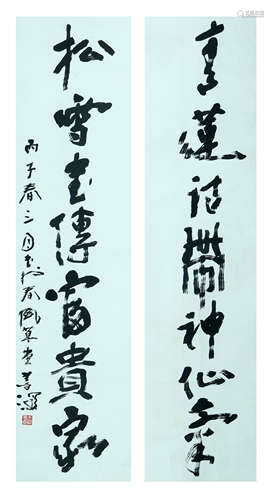 青蓮詩帶神仙氣
松雪書傳富貴家
丙子春三月書於春風草堂